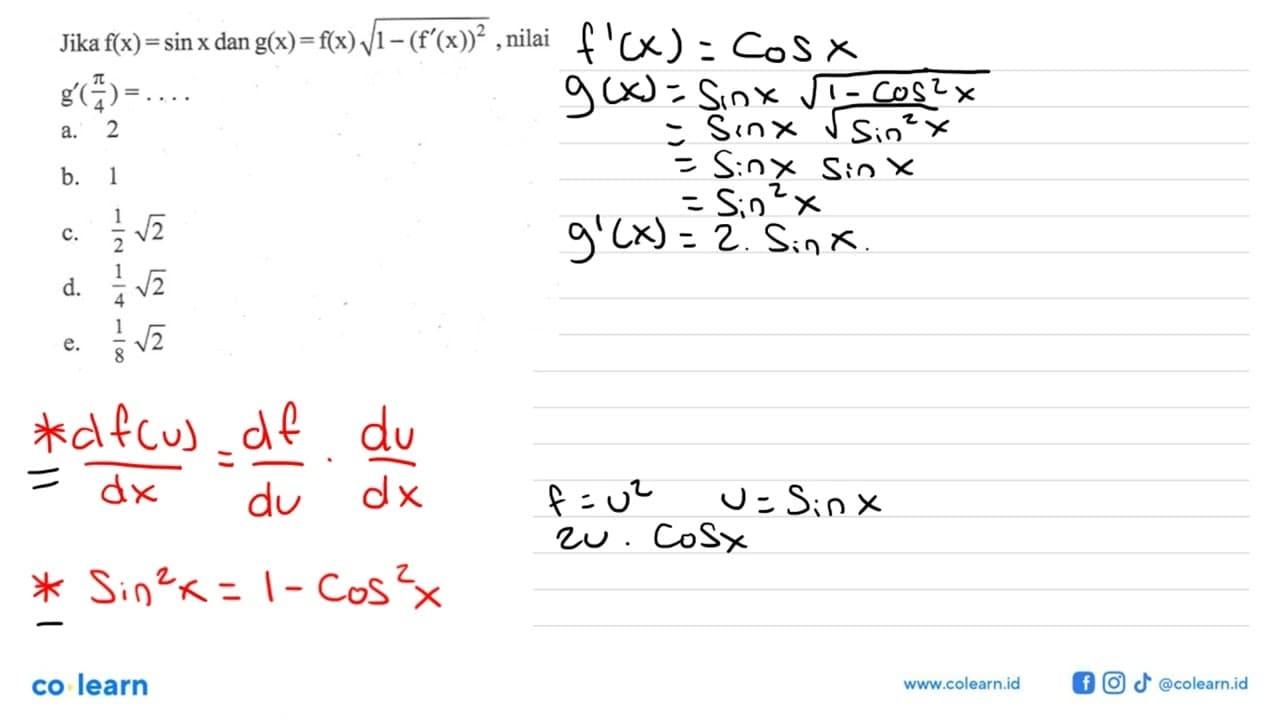 Jika f(x) = sin x dan g(x) = f(x) √(1 – (f′(x))²) , nilai
g′(π/4) = . . . .
a. 2
b. 1
c. 1/2 √2
d. 1/4 √2
e. 1/8 √2
f'(x) = Cos x
g(x) = Sin x √(1 - Cos² x)
= Sin x √(Sin² x)
= Sin x Sin x
= Sin² x
g'(x) = 2. Sin x.
* df(u)/dx = df/du . du/dx
=
f = u² u = Sin x
2u . Cos x
* Sin² x = 1 - Cos² x
–
co learn
www.colearn.id
@colearn.id